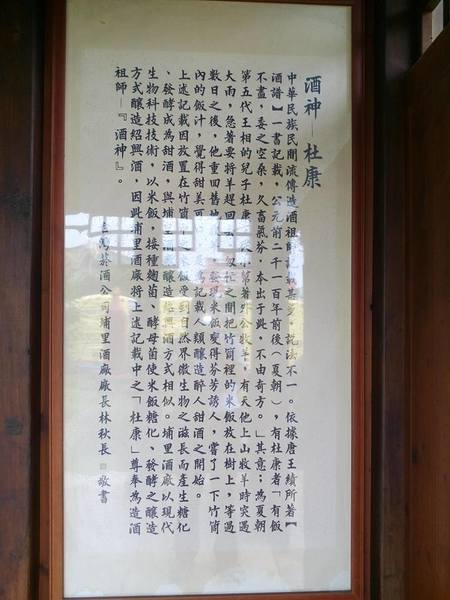 酒神─杜康
中華民族民間流傳造酒祖師記載甚多，說法不一。依據唐王績所著【
酒譜】一書記載，公元前二千一百年前後（夏朝），有杜康者「有飯
不盡，委之空桑，久蓄氣芬，本出于此，不由奇方。」其意：為夏朝
第五代王相的兒子杜康，著外公牧羊，有天他上山牧羊時突遇
大雨，急著要將羊趕回，匆忙之間把竹筒裡的米飯放在樹上，等過
數日之後，他重回舊地，發現米飯變得芬芳誘人，嘗了一下竹筒
內的飯汁，覺得甜美可為記載人類釀造醉人甜酒之開始。
上述記載因放置在竹筒米飯受到自然界微生物之滋長而產生糖化
、發酵成為甜酒，與埔里酒廠釀造紹興酒方式相似。埔里酒廠以現代
生物科技技術，以米飯，接種麴菌、酵母菌使米飯糖化、發酵之釀造
方式釀造紹興酒，因此埔里酒廠將上述記載中之「杜康」尊奉為造酒
祖師─『酒神』。
菸酒公司埔里酒廠廠長林秋長 敬書